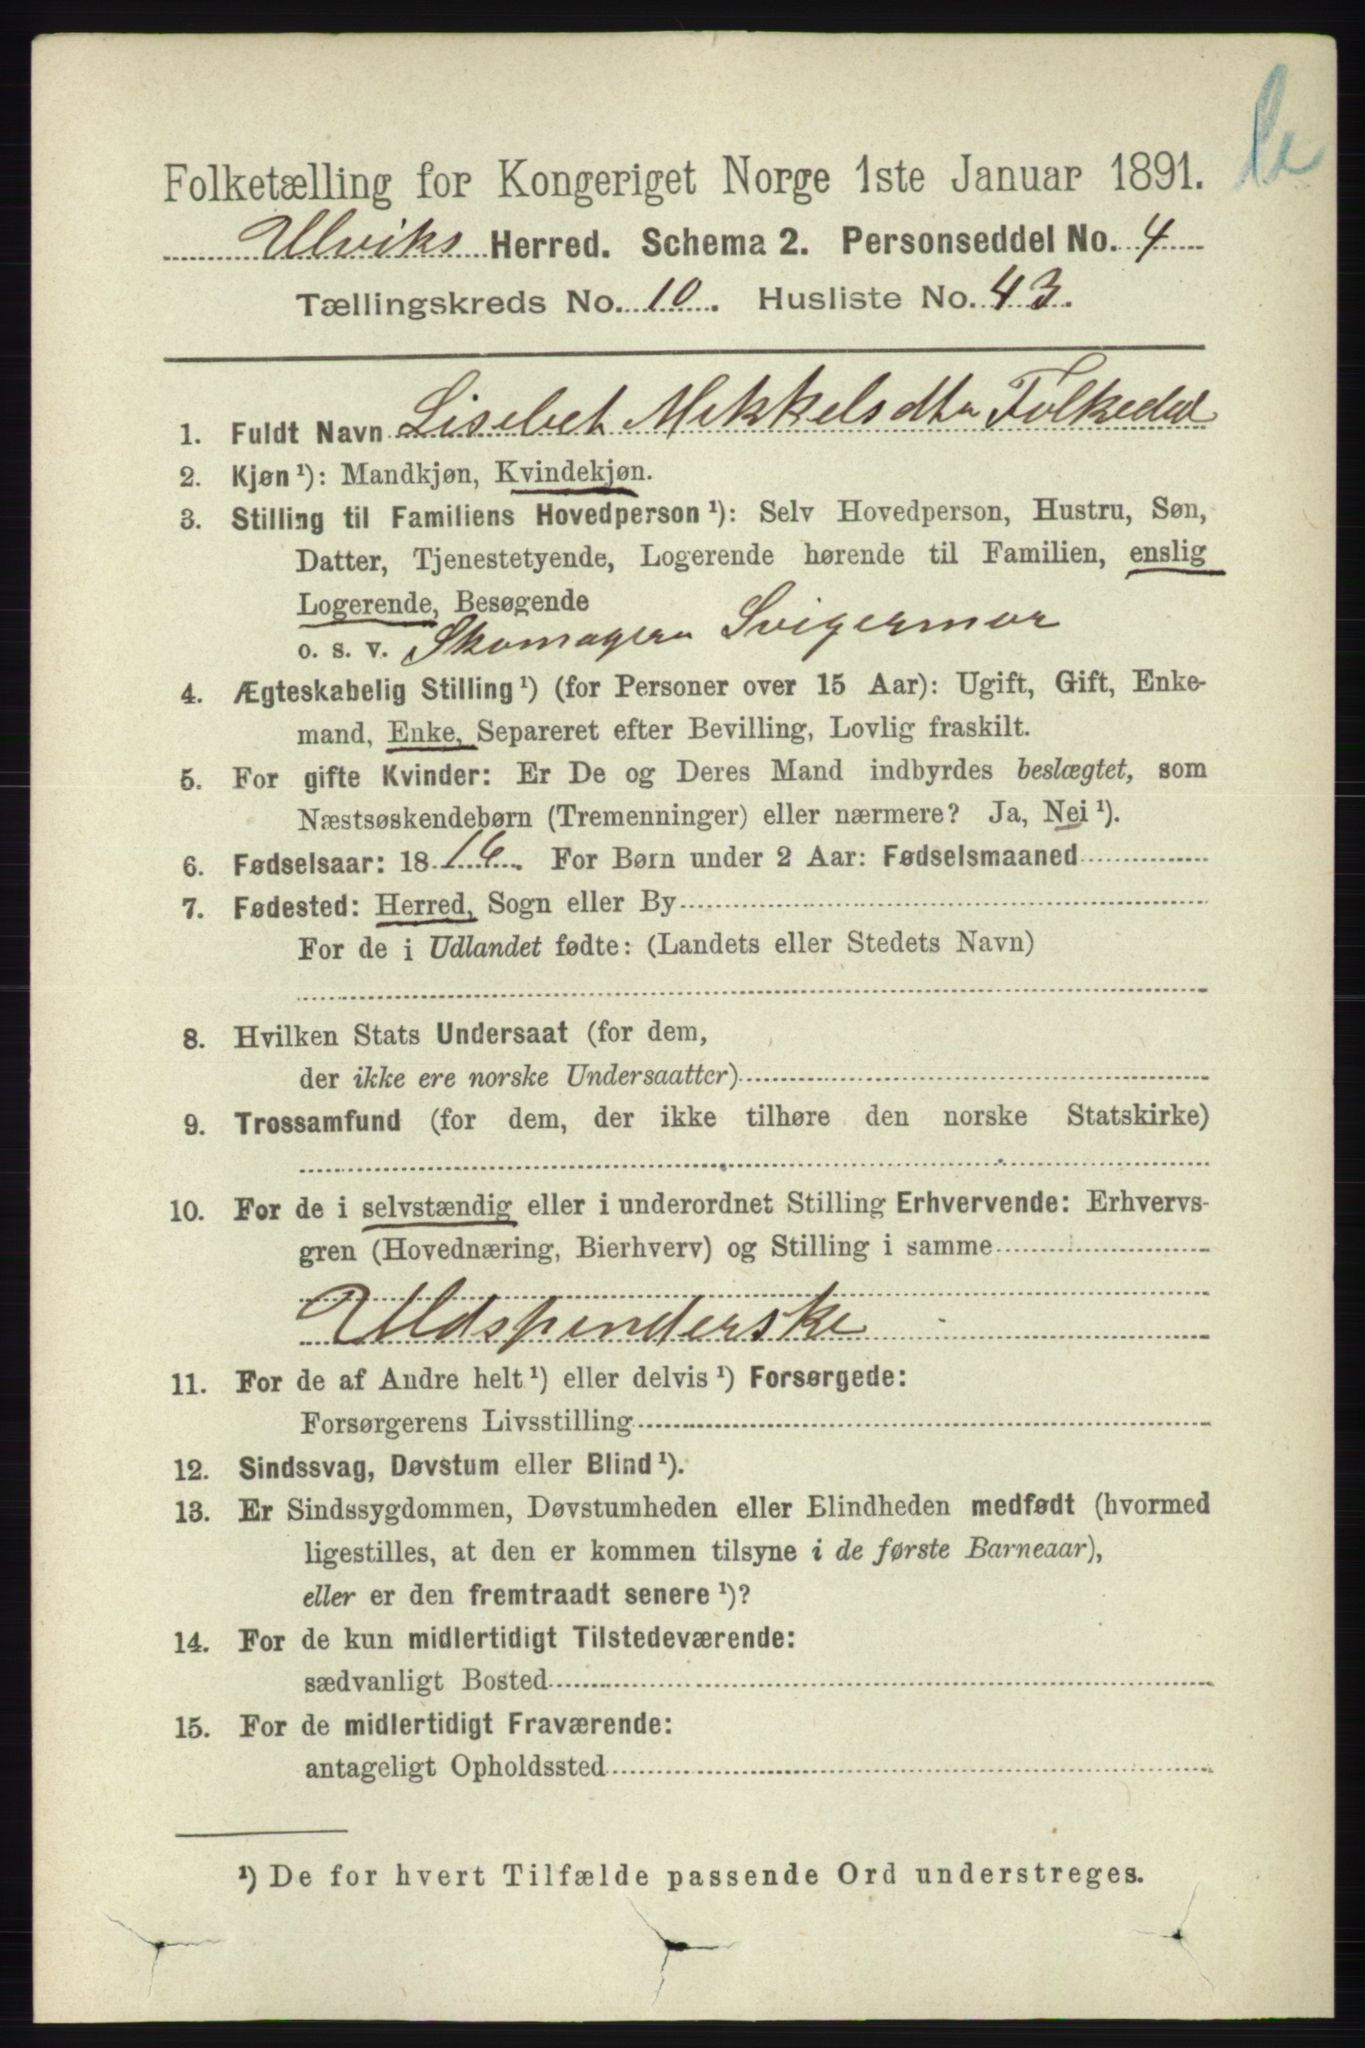 Folketælling for Kongeriget Norge 1ste Januar 1891.
Ulviks Herred. Schema 2. Personseddel No. 4
Tællingskreds No. 10. Husliste No. 43.
1. Fuldt Navn Lisebet Mikkelsdtr Folkedal
2. Kjøn ¹): Mandkjøn, Kvindekjøn.
3. Stilling til Familiens Hovedperson ¹): Selv Hovedperson, Hustru, Søn,
Datter, Tjenestetyende, Logerende hørende til Familien, enslig
Logerende, Besøgende
o. s. v. Skomagern Svigermor
4. Ægteskabelig Stilling ¹) (for Personer over 15 Aar): Ugift, Gift, Enke-
mand, Enke, Separeret efter Bevilling, Lovlig fraskilt.
5. For gifte Kvinder: Er De og Deres Mand indbyrdes beslægtet, som
Næstsøskendebørn (Tremenninger) eller nærmere? Ja, Nei ¹).
6. Fødselsaar: 1816. For Børn under 2 Aar: Fødselsmaaned
7. Fødested: Herred, Sogn eller By
For de i Udlandet fødte: (Landets eller Stedets Navn)
8. Hvilken Stats Undersaat (for dem,
der ikke ere norske Undersaatter)
9. Trossamfund (for dem, der ikke tilhøre den norske Statskirke)
10. For de i selvstændig eller i underordnet Stilling Erhvervende: Erhvervs-
gren (Hovednæring, Bierhverv) og Stilling i samme
Uldspinderske
11. For de af Andre helt ¹) eller delvis ¹) Forsørgede:
Forsørgerens Livsstilling
12. Sindssvag, Døvstum eller Blind ¹).
13. Er Sindssygdommen, Døvstumheden eller Blindheden medfødt (hvormed
ligestilles, at den er kommen tilsyne i de første Barneaar),
eller er den fremtraadt senere ¹)?
14. For de kun midlertidigt Tilstedeværende:
sædvanligt Bosted
15. For de midlertidigt Fraværende:
antageligt Opholdssted
¹) De for hvert Tilfælde passende Ord understreges.